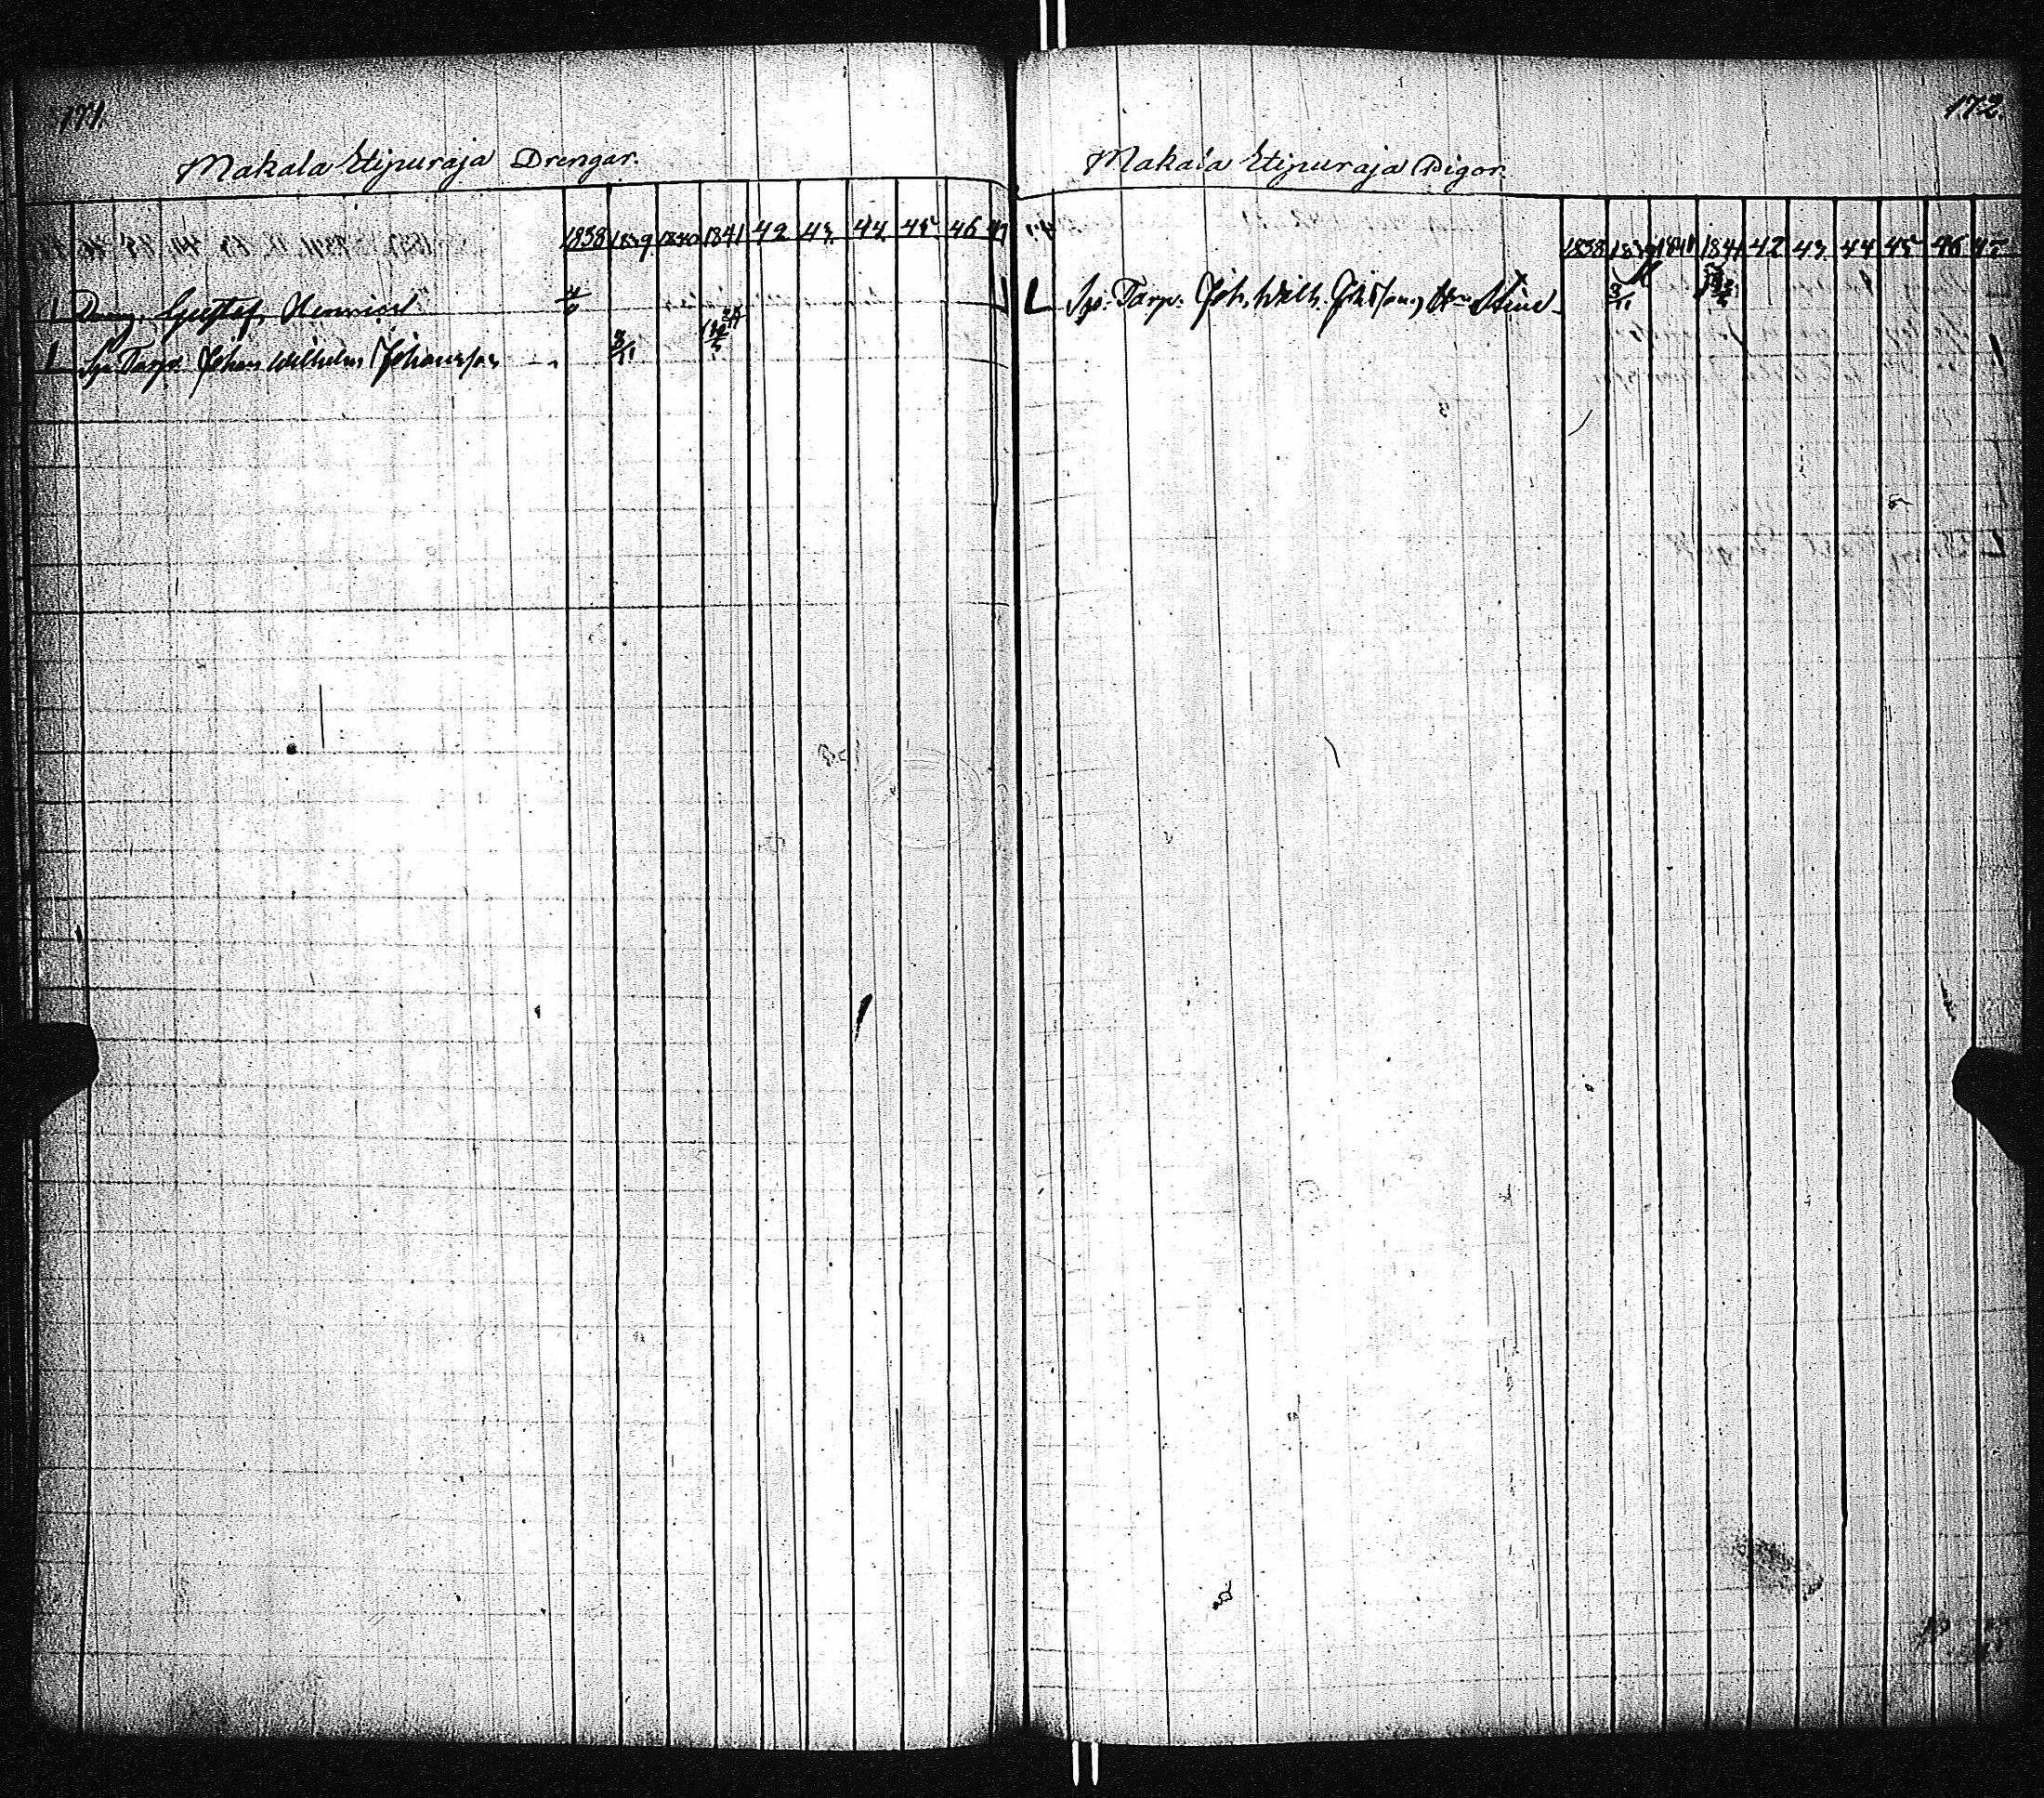 171.
Makala Etipuraja Drengar.
1838 1839 1840 1841 42 43. 44. 45. 46 47
Dreng. Gustaf Henrick
Sp. Torp. Johan Wilhelm Johansson 3/11
172.
Makala Etipuraja Pigor.
1838 1839 1840 1841 42 43 44 45 46 47
Sp. Torp. Joh. Wilh. Johsson, Stina 3/11